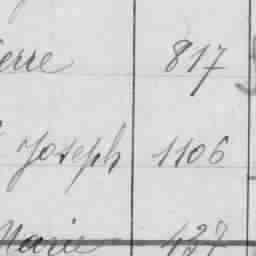 ierre 817
Joseph 1106
Marie 427